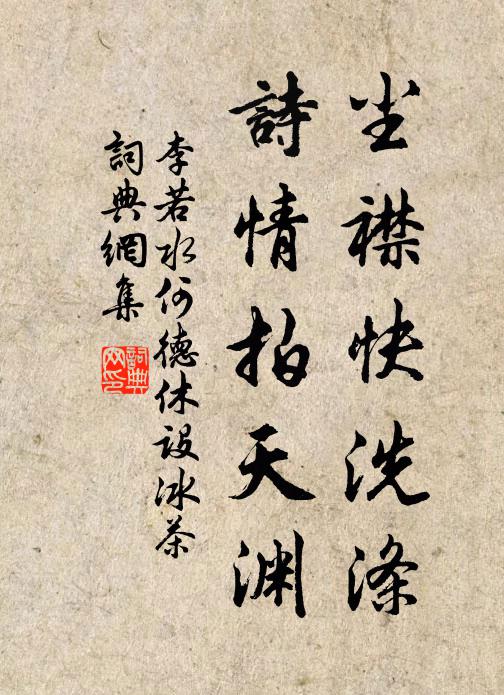 尘襟快洗涤
詩情拍天渊
李若水何德休設冰茶
詞典網集
詞典网印